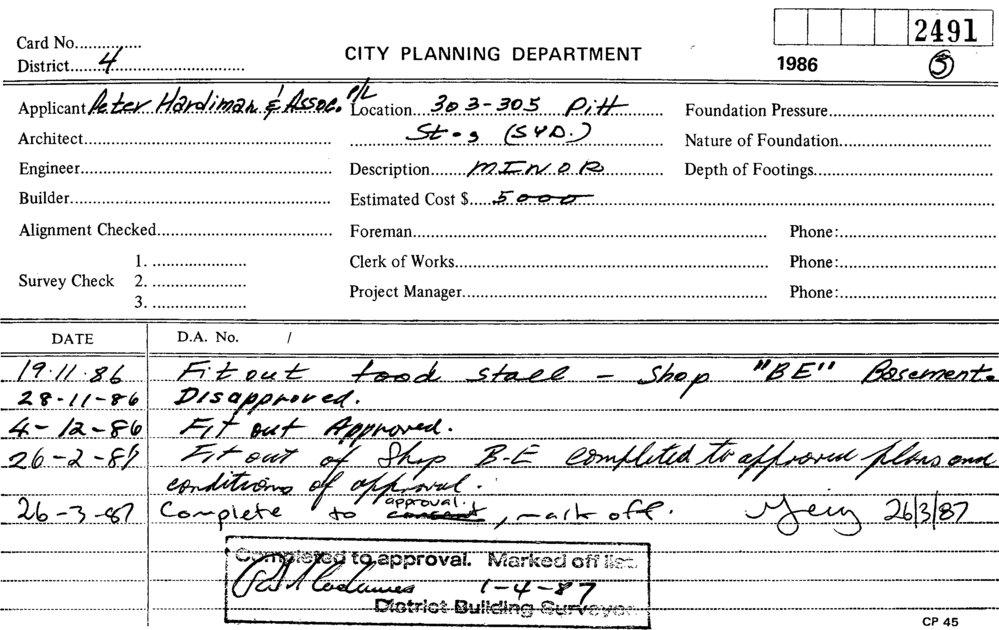 2491
Card No.
CITY PLANNING DEPARTMENT
1986
5
District 4
Applicant Peter Hardiman & Assoc. P/L
Location 303-305 Pitt
Foundation Pressure
Architect
St. (SYD.)
Nature of Foundation
Engineer
Description MINOR
Depth of Footings
Builder
Estimated Cost $ 5000
Alignment Checked
Foreman
Phone:
Survey Check
1.
2.
3.
Clerk of Works
Phone:
Project Manager
Phone:
DATE
D.A. No. /
19.11.86 Fit out food stall - Shop "BE" Basement.
28-11-86 Disapproved.
4-12-86 Fit out Approved.
26-2-87 Fit out of Shop B-E completed to approved plans and
conditions of approval.
approval.
26-3-87 Complete to consent, mark off. 26/3/87
Completed to approval. Marked off list.
1-4-87
District Building Surveyor
CP 45